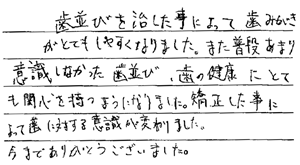 歯並びを治した事によって歯みがき
がとてもしやすくなりました。また普段あまり
意識しなかった歯並び、歯の健康にとて
も関心を持つようになりました。矯正した事に
よって歯に対する意識が変わりました。
今までありがとうございました。